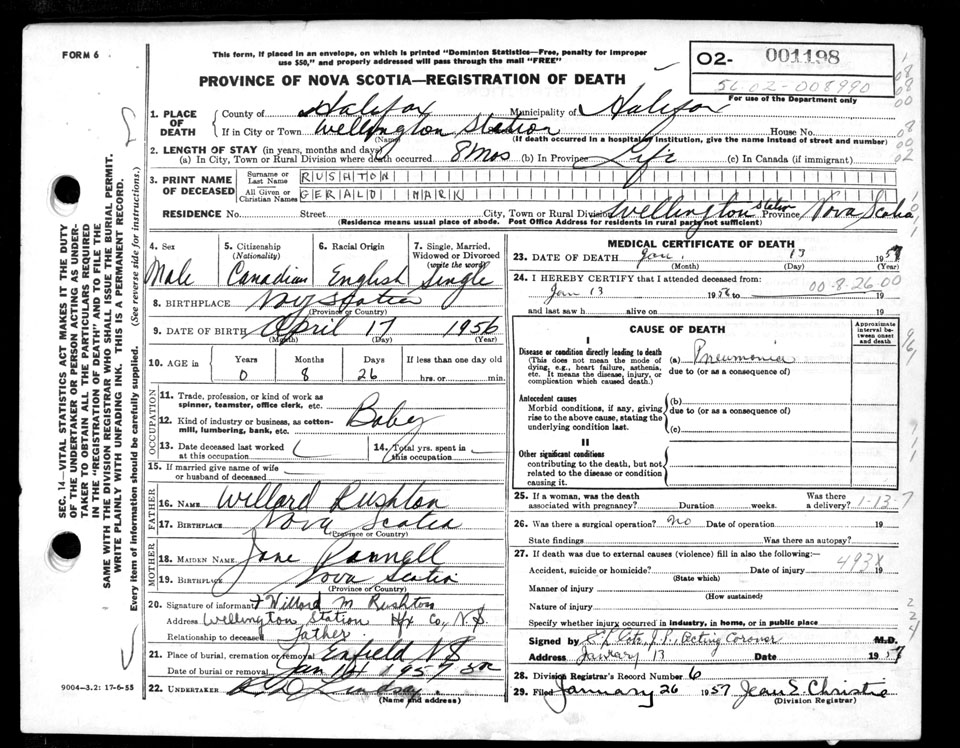 FORM 6
This form, if placed in an envelope, on which is printed "Dominion Statistics—Free, penalty for improper
use $50," and properly addressed will pass through the mail "FREE"
PROVINCE OF NOVA SCOTIA—REGISTRATION OF DEATH
02- 001198
56-02-008990
For use of the Department only
SEC. 14—VITAL STATISTICS ACT MAKES IT THE DUTY
OF THE UNDERTAKER OR PERSON ACTING AS UNDER-
TAKER TO OBTAIN ALL THE PARTICULARS REQUIRED
IN THE "REGISTRATION OF DEATH" AND TO FILE THE
SAME WITH THE DIVISION REGISTRAR WHO SHALL ISSUE THE BURIAL PERMIT.
WRITE PLAINLY WITH UNFADING INK. THIS IS A PERMANENT RECORD.
Every item of information should be carefully supplied. (See reverse side for instructions.)
1. PLACE OF DEATH
County of Halifax Municipality of Halifax
If in City or Town Wellington Station House No.
(Name) (If death occurred in a hospital or institution, give the name instead of street and number)
2. LENGTH OF STAY (in years, months and days)
(a) In City, Town or Rural Division where death occurred 8 Mos (b) In Province Life (c) In Canada (if immigrant)
3. PRINT NAME OF DECEASED
Surname or Last Name RUSHTON
All Given or Christian Names GERALD MARK
RESIDENCE No. Street City, Town or Rural Division Wellington Station Province Nova Scotia
(Residence means usual place of abode. Post Office Address for residents in rural parts not sufficient)
4. Sex Male
5. Citizenship (Nationality) Canadian
6. Racial Origin English
7. Single, Married, Widowed or Divorced (write the word) Single
8. BIRTHPLACE
(Province or Country)
9. DATE OF BIRTH April 17 1956
(Month) (Day) (Year)
10. AGE in Years Months Days If less than one day old
0 8 26 hrs. or min.
OCCUPATION
11. Trade, profession, or kind of work as spinner, teamster, office clerk, etc.
12. Kind of industry or business, as cotton-mill, lumbering, bank, etc. Baby
13. Date deceased last worked at this occupation
14. Total yrs. spent in this occupation
15. If married give name of wife or husband of deceased
FATHER
16. NAME Willard Rushton
17. BIRTHPLACE Nova Scotia
(Province or Country)
MOTHER
18. MAIDEN NAME Jane
19. BIRTHPLACE Nova Scotia
(Province or Country)
20. Signature of informant Willard M Rushton
Address Wellington Station Hfx Co N.S.
Relationship to deceased Father
21. Place of burial, cremation or removal Enfield NS
Date of burial or removal Jan 1957
22. UNDERTAKER Lindsay
(Name and address)
9004—3.2: 17-6-55
MEDICAL CERTIFICATE OF DEATH
23. DATE OF DEATH Jan. 13 1957
(Month) (Day) (Year)
24. I HEREBY CERTIFY that I attended deceased from:
Jan 13 19 to 19
00-8-26 00
and last saw h alive on 19
CAUSE OF DEATH
Approximate interval between onset and death
I
Disease or condition directly leading to death (a) Pneumonia
(This does not mean the mode of dying, e.g., heart failure, asthenia, etc. It means the disease, injury, or complication which caused death.)
due to (or as a consequence of)
Antecedent causes
Morbid conditions, if any, giving rise to the above cause, stating the underlying condition last.
(b)
due to (or as a consequence of)
(c)
II
Other significant conditions
contributing to the death, but not related to the disease or condition causing it.
25. If a woman, was the death associated with pregnancy? Duration weeks. Was there a delivery?
1-13-7
26. Was there a surgical operation? no Date of operation 19
State findings Was there an autopsy?
27. If death was due to external causes (violence) fill in also the following:—
Accident, suicide or homicide? Date of injury 19
(State which)
493X
Manner of injury
(How sustained)
Nature of injury
Specify whether injury occurred in industry, in home, or in public place
Signed by J.P. Acting Coroner M.D.
Address January 13 Date 1957
28. Division Registrar's Record Number 6
29. Filed January 26 1957 Jean E. Christie
(Division Registrar)